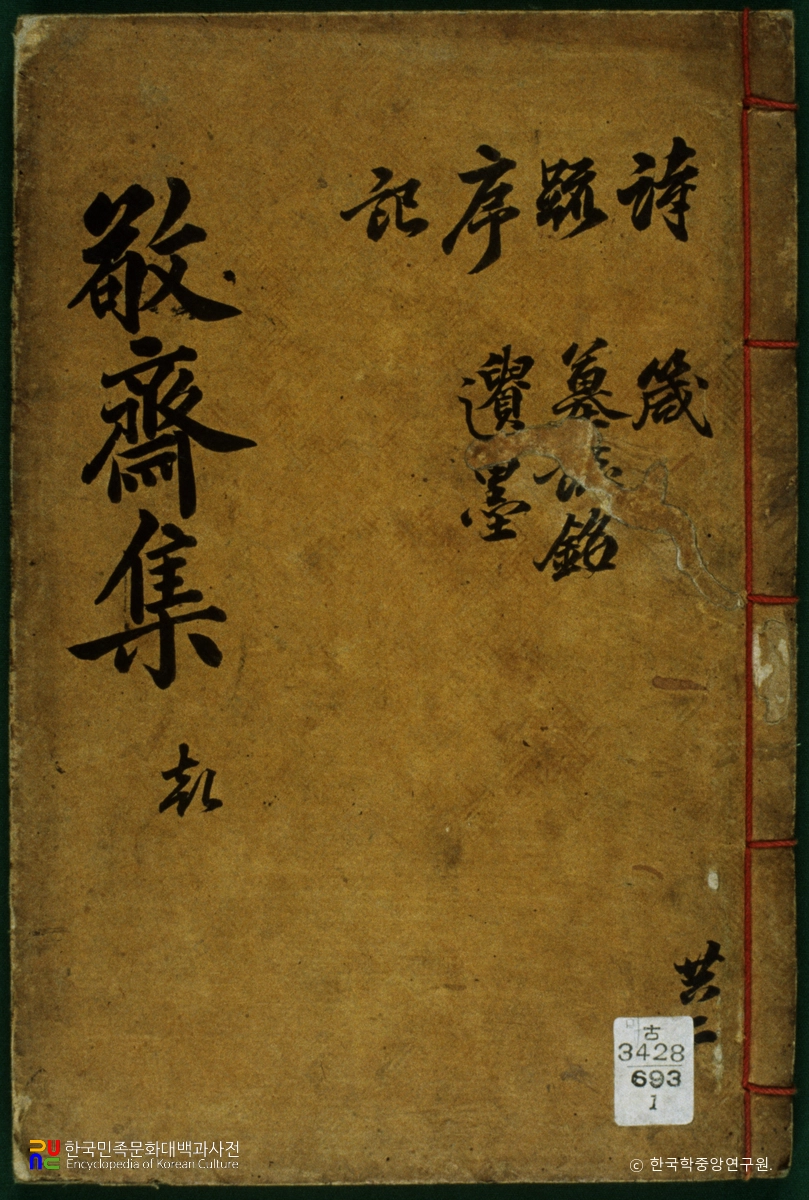 詩 箴
共二
䟽 墓誌銘
序 遺墨
記
敬齋集
古
3428
693
1
한국민족문화대백과사전
Encyclopedia of Korean Culture
© 한국학중앙연구원.